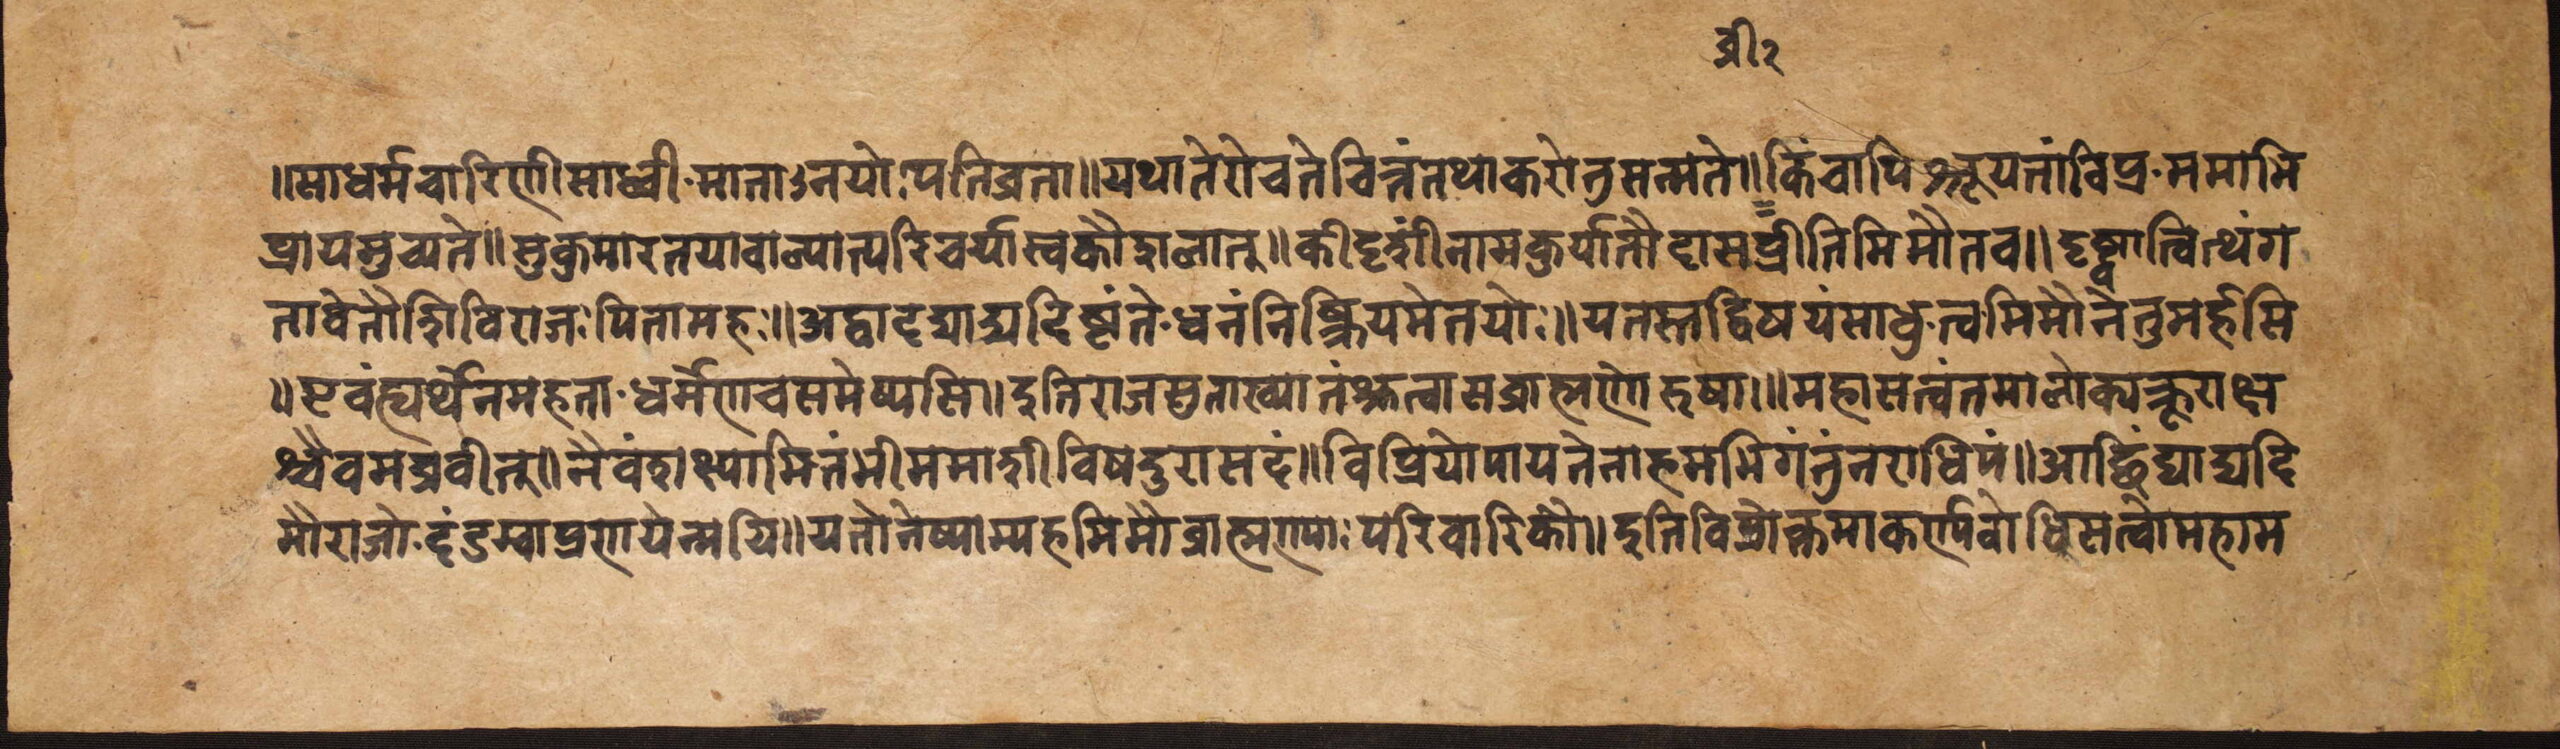 व्री२
॥साधर्मचारिणीसाध्वी·माताऽनयोःपतिव्रता॥यथातेरोचतेचित्तंतथाकरोतुसन्मते॥किंचापिश्रूयतांविप्र·ममाभि
प्रायमुच्यते॥सुकुमारतयाबाल्यात्परिचर्यास्वकौशलात्॥कीदृशींनामकुर्यातौदासप्रीतिमिमौतव॥दृष्ट्वात्वित्थंग
तावेतौशिविराजःपितामहः॥अद्धादद्याद्यदिष्टंते·धनंनिष्क्रियमेतयोः॥यतस्तद्विषयंसाधु·त्वमिमौनेतुमर्हसि
॥एवंह्यर्थेनमहता·धर्मेणचसमेष्यसि॥इतिराजसुताख्यातंश्रुत्वासब्राह्मणोरुषा॥महासत्वंतमालोक्यक्रूराक्ष
श्चैवमब्रवीत्॥नैवंशक्ष्यामितंभीममाशीविषदुरासदं॥विप्रियोपायनेनाहमभिगंतुंनराधिपं॥आछिंद्याद्यदि
मौराजो·दंडम्वाप्रणयेन्मयि॥यतोनेष्याम्यहमिमौब्राह्मण्याःपरिचारिकौ॥इतिविप्रोक्तमाकर्ण्यबोधिसत्वोमहाम